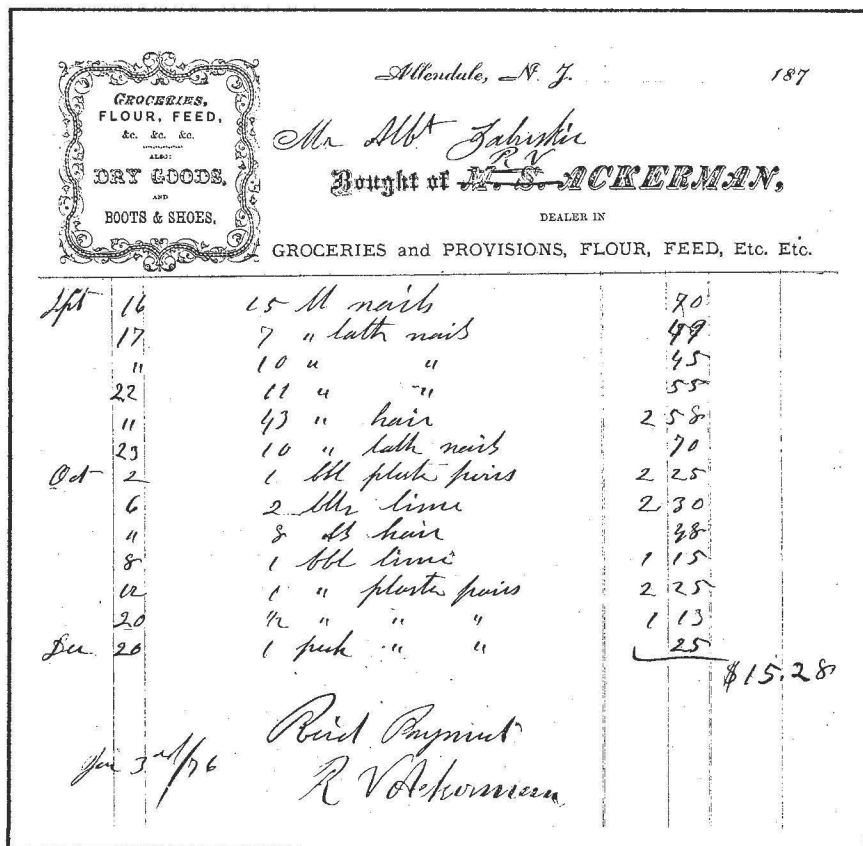 GROCERIES,
FLOUR, FEED,
&c. &c. &c.
ALSO:
DRY GOODS,
AND
BOOTS & SHOES,
Allendale, N. J. 187
Mr Albt Zabriskie
R V
Bought of M. S. ACKERMAN,
DEALER IN
GROCERIES and PROVISIONS, FLOUR, FEED, Etc. Etc.
Sept 16 15 lb nails 70
17 7 " lath nails 49
" 10 " " 45
22 11 " " 55
" 43 " hair 2 58
23 10 " lath nails 70
Oct 2 1 bbl plaster paris 2 25
6 2 bbls lime 2 30
" 8 lb hair 48
8 1 bbl lime 1 15
12 1 " plaster paris 2 25
20 1/2 " " " 1 13
Dec 20 1 peck " " 25
$15.28
Recd Payment
Jan 3rd/76 R V Ackerman